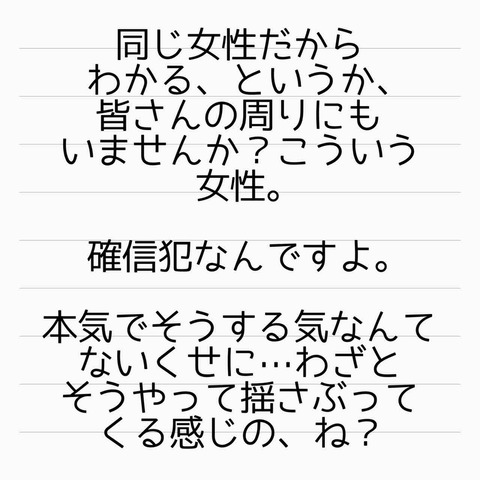 同じ女性だから
わかる、というか、
皆さんの周りにも
いませんか？こういう
女性。
確信犯なんですよ。
本気でそうする気なんて
ないくせに…わざと
そうやって揺さぶって
くる感じの、ね？